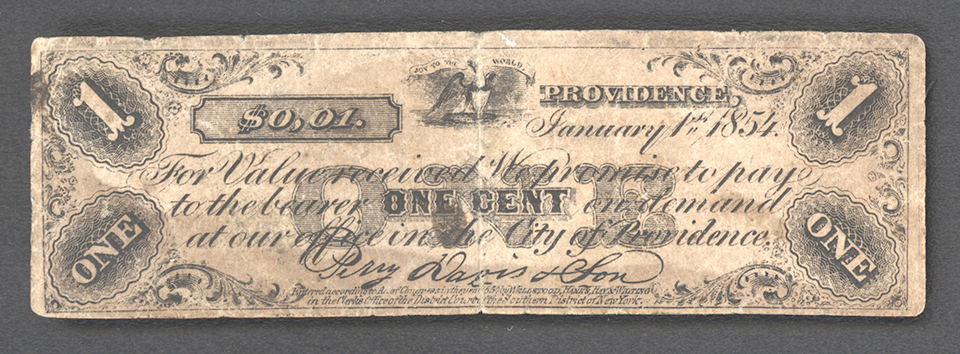 1
JOY TO THE WORLD.
$0,01.
PROVIDENCE,
1
January 1st. 1854.
For Value received We promise to pay
to the bearer ONE CENT on demand
ONE
at our office in the City of Providence.
ONE
ONE
Perry Davis & Son
Entered according to Act of Congress in the year by WELLSTOOD, HANKS, HAY & WHITING
in the Clerks Office of the District Court the Southern District of New York.